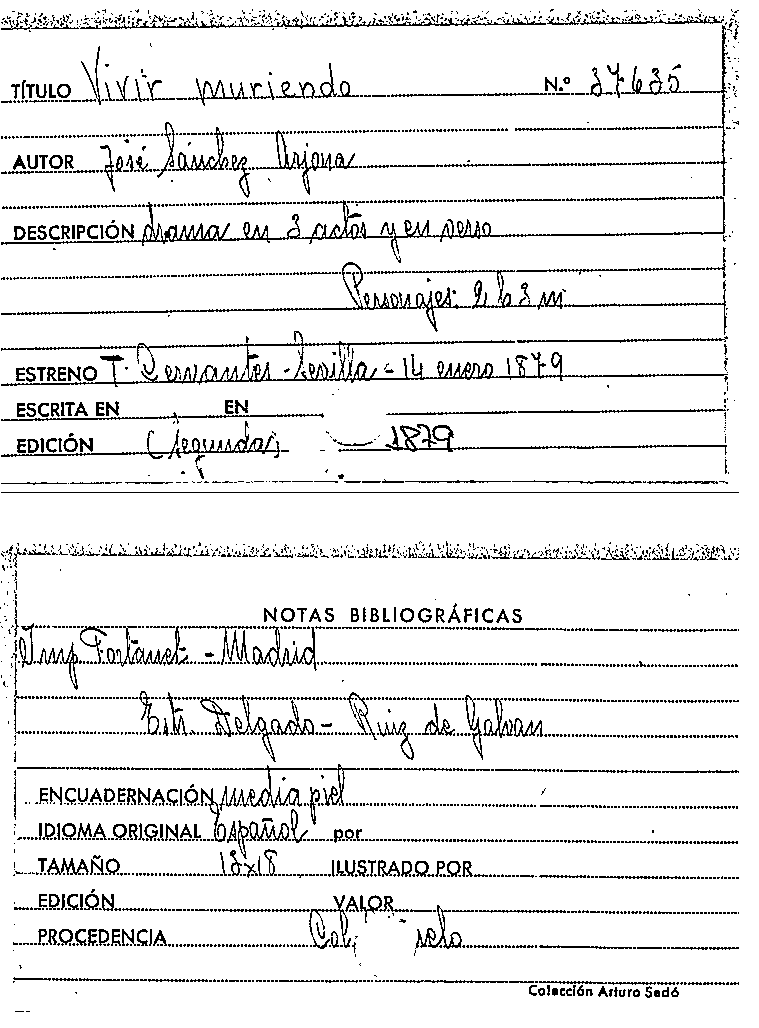 TÍTULO Vivir muriendo N.º 37635
AUTOR José Sánchez Arjona
DESCRIPCIÓN drama en 3 actos y en verso
Personajes: 2 h 3 m
ESTRENO T. Cervantes - Sevilla = 14 enero 1879
ESCRITA EN EN
EDICIÓN (Segunda) 1879
NOTAS BIBLIOGRÁFICAS
Imp Fortanet - Madrid
Estr. Delgado - Ruiz de Galvan
ENCUADERNACIÓN media piel
IDIOMA ORIGINAL Español por
TAMAÑO 13x18 ILUSTRADO POR
EDICIÓN VALOR
PROCEDENCIA
Colección Arturo Sedó